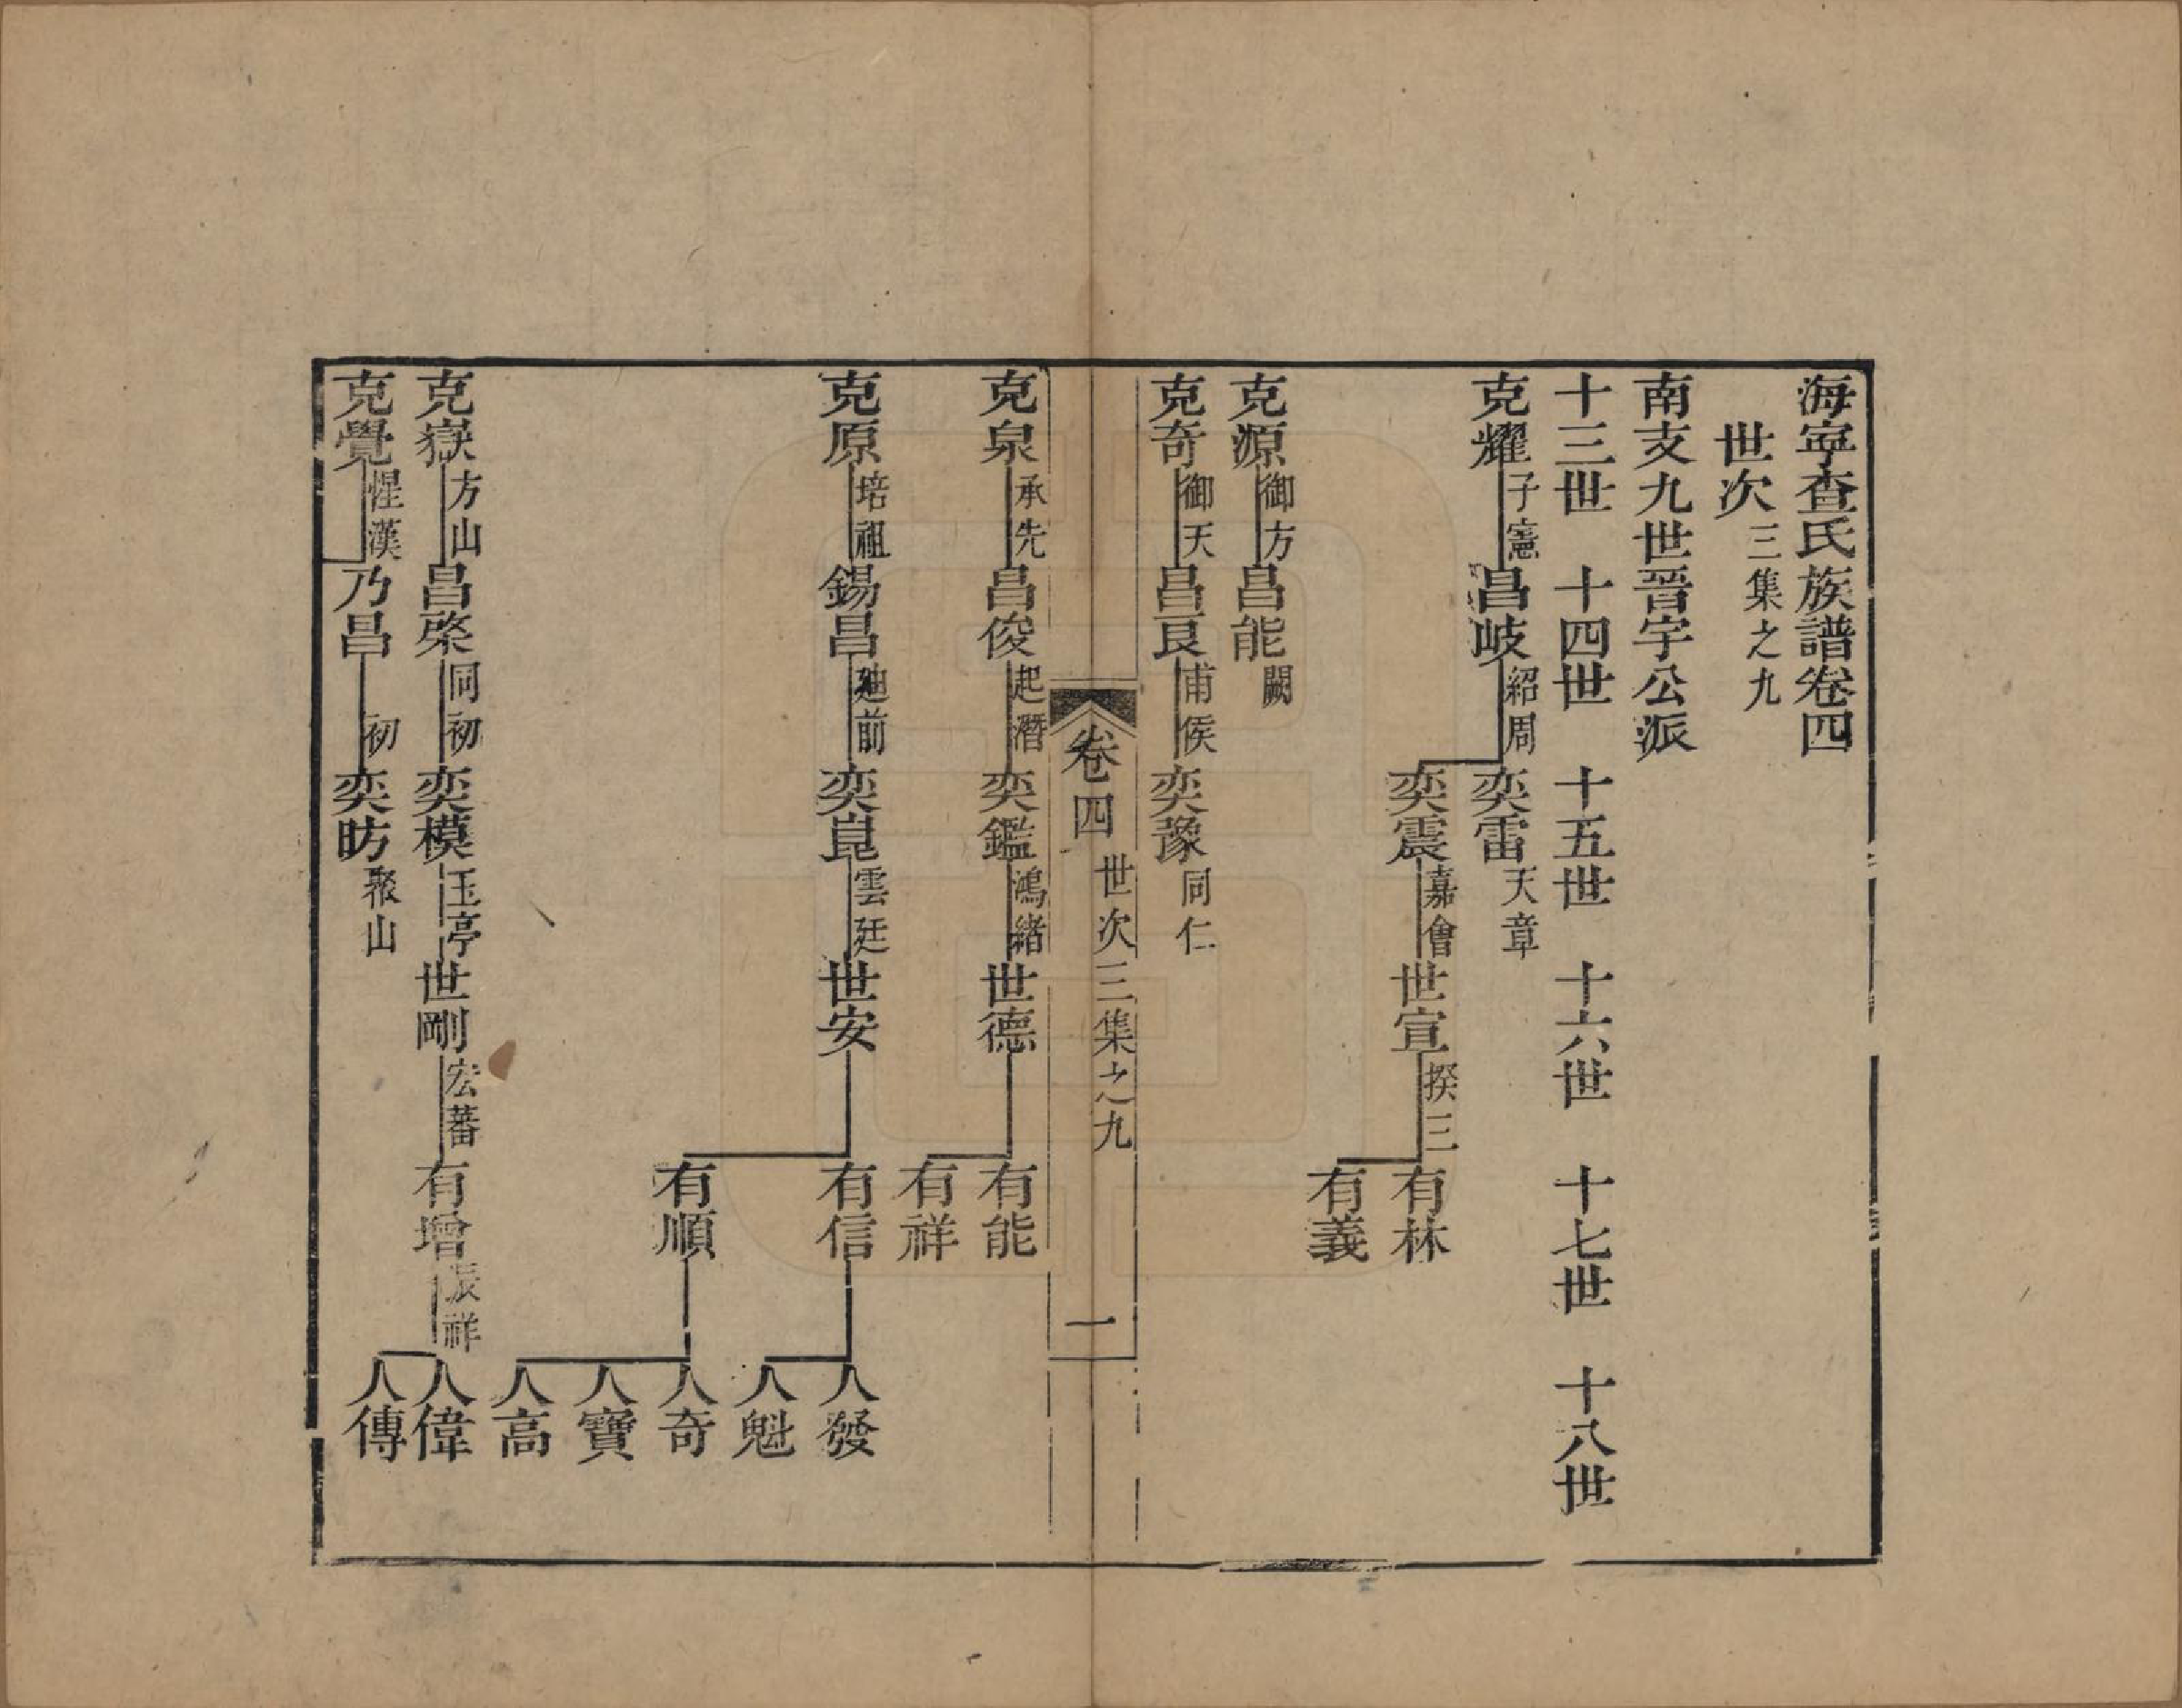 海寧查氏族譜卷四
世次三集之九
南支九世晉宇公派
十三世 十四世 十五世 十六世 十七世 十八世
克耀子憲昌岐紹周奕雷天章
奕震嘉會世宣揆三有林
有義
克源御方昌能闕
克奇御天昌良甫侯奕豫同仁
卷四 世次三集之九 一
克泉承先昌俊起潛奕鑑鴻緒世德有能
有祥
克原培祖錫昌廸前奕崑雲廷世安有信人發
人魁
有順人奇
人寶
人高
克嶽方山昌棨同初奕模玉亭世剛宏蕃有增辰祥人偉
人傳
克覺惺漢乃昌 初奕昉聚山